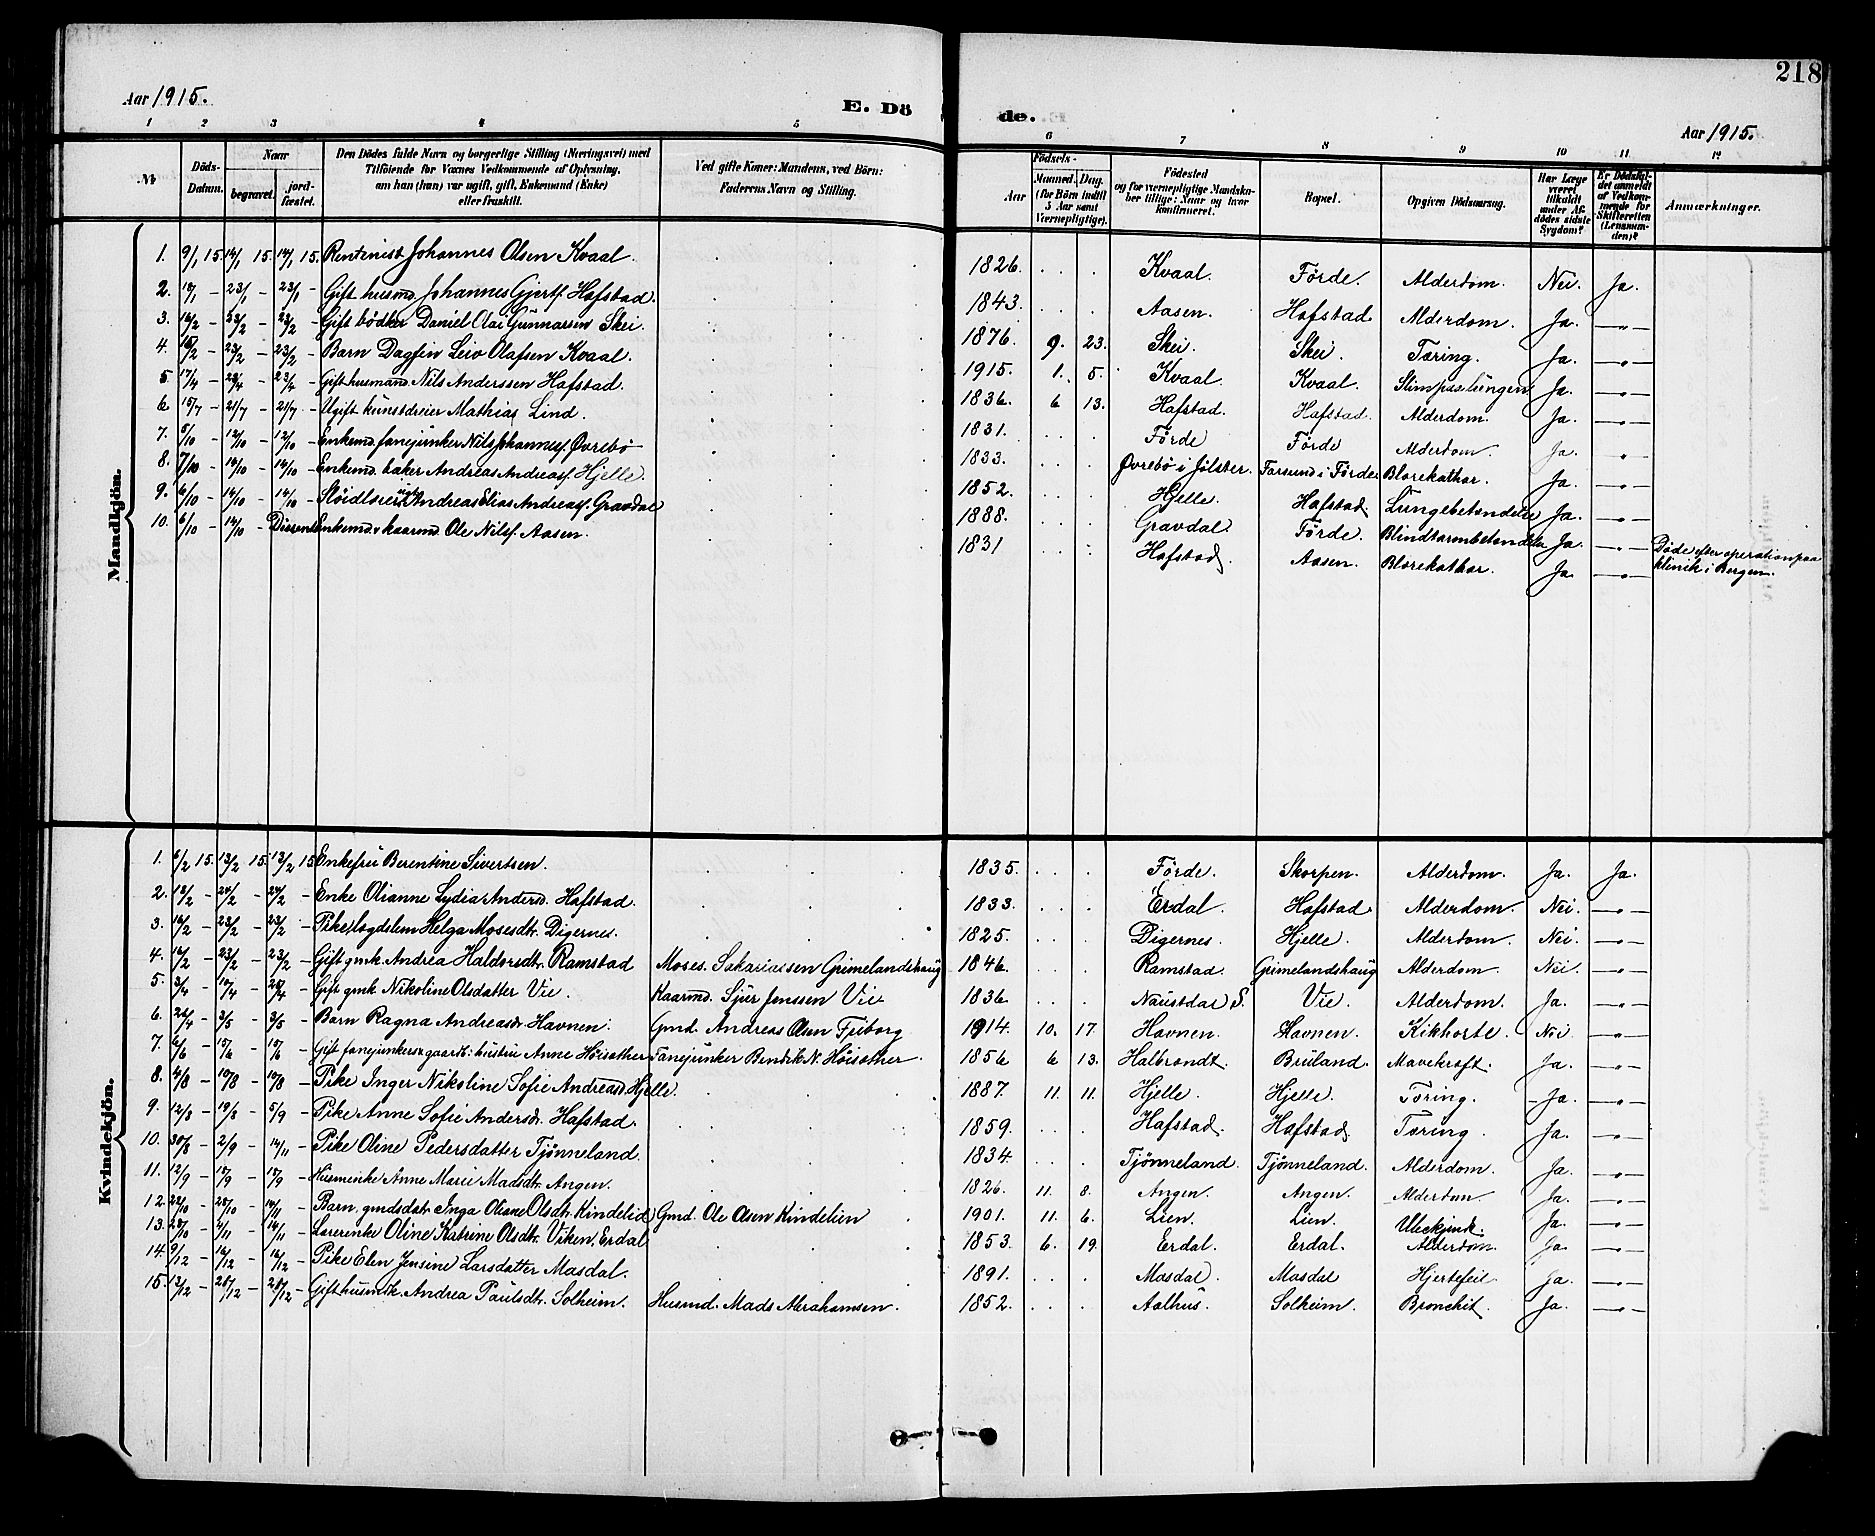 218
Aar 1915.
E. Dö
de.
Aar 1915.
1 2 3 4 5 6 7 8 9 10 11 12
№
Döds-Datum.
Naar
begravet.
jord-fæstet.
Den Dödes fulde Navn og borgerlige Stilling (Næringsvei) med
Tilföiende for Voxnes Vedkommende af Oplysning,
om han (hun) var ugift, gift, Enkemand (Enke)
eller fraskilt.
Ved gifte Koner: Mandens, ved Börn:
Faderens Navn og Stilling.
Födsels-
Aar
Maaned. Dag.
(for Börn indtil
5 Aar samt
Værnepligtige).
Födested
og for værnepligtige Mandska-
ber tillige: Naar og hvor
konfirmeret.
Bopæl.
Opgiven Dödsaarsag.
Har Læge
været
tilkaldt
under Af-
dödes sidste
Sygdom?
Er Dödsfal-
det anmeldt
af Vedkom-
mende for
Skifteretten
(Lensman-
den)?
Anmærkninger.
Mandkjön.
1. 9/1 15. 14/1 15. 14/1 15. Rentenist Johannes Olsen Kvaal. 1826. Kvaal. Førde. Alderdom. Nei. Ja.
2. 18/1 - 23/1 - 23/1 - Gift husmd. Johannes Gjertf. Hafstad. 1843. Aasen. Hafstad Alderdom. Ja. -"-
3. 16/2 - 23/2 - 23/2 - Gift bødker Daniel Olai Gunnarsen Skei. 1876. 9. 23. Skei. Skei. Tæring. Ja. -"-
4. 16/2 - 23/2 - 23/2 - Barn Dagfin Leiv Olafsen Kvaal. 1915. 1. 5. Kvaal. Kvaal. Slimpaalungen Ja. -"-
5. 17/4 - 23/4 - 23/4 - Gift husmand Nils Anderssen Hafstad. 1836. 6 13. Hafstad. Hafstad. Alderdom. Ja. -"-
6. 15/7 - 21/7 - 21/7 - Ugift kunstdreier Mathias Lind. 1831. Førde Førde Alderdom. Ja. -"-
7. 5/10 - 12/10 - 12/10 - Enkemd. fanejunker Nils Johannesf. Øvrebø 1833. Øvrebø i Jølster. Farsund i Førde Blærekathar. Ja. -"-
8. 7/10 - 14/10 - 14/10 - Enkemd. baker Andreas Andreasf. Hjelle. 1852. Hjelle. Hafstad. Lungebetændelse Ja. -"-
9. 6/10 - 14/10 - 14/10 - Andreas Elias Andreasf. Gravdal 1888. Gravdal. Førde. Blindtarmbetændelse Ja. -"- Døde efter operation paa
klinik i Bergen.
10. 6/10 - 14/10 - Dissent Enkemd. kaarmd. Ole Nilsf. Aasen. 1831 Hafstad. Aasen. Blærekathar. Ja. -"-
Kvindekjön.
1. 6/2 15. 13/2 15. 13/2 15. Enkefru Berentine Sivertsen. 1835. Førde. Skorpen. Alderdom. Ja. Ja.
2. 18/2 - 24/2 - 24/2 - Enke Olianne Lydia Andersd. Hafstad. 1833. Erdal. Hafstad. Alderdom. Nei. -"-
3. 16/2 - 23/2 - 23/2 - Pike lægdslem Helga Mosesdtr. Digernes. 1825. Digernes. Hjelle. Alderdom. Nei. -"-
4. 16/2 - 23/2 - 23/2 - Gift gmk. Andrea Haldorsdtr. Ramstad Moses Sakariassen Grimelandshaug 1846. Ramstad. Grimelandshaug Alderdom. Nei. -"-
5. 3/4 - 10/4 - 28/4 - Gift gmk. Nikoline Olsdatter Vie. Kaarmd. Sjur Jenssen Vie 1836. Naustdal S. Vie. Alderdom. Ja. -"-
6. 26/4 - 3/5 - 3/5 - Barn Ragna Andreasdr. Havnen. Gmd. Andreas Olsen Friborg 1914. 10. 17. Havnen. Havnen. Kikhoste. Nei -"-
7. 6/6 - 15/6 - 15/6 - Gift fanejunker og gaardb: hustru Anne Høisæther Fanejunker Bendik N. Høisæther. 1856 6 13. Halbrendt. Bruland. Mavekræft. Ja. -"-
8. 4/8 - 10/8 - 10/8 - Pike Inger Nikoline Sofie Andreasd. Hjelle. 1887. 11. 11. Hjelle. Hjelle. Tæring. Ja. -"-
9. 12/8 - 19/8 - 5/9 - Pike Anne Sofie Andersdr. Hafstad. 1859. Hafstad. Hafstad. Tæring. Ja. -"-
10. 30/8 - 2/9 - 14/11 - Pike Oline Pedersdatter Tjønneland. 1834. Tjønneland. Tjønneland. Alderdom. Ja. -"-
11. 12/9 - 18/9 - 18/9 - Husmenke Anne Marie Madsdtr. Angen. 1826. 11. 8. Angen. Angen. Alderdom. Ja. -"-
12. 22/10 - 28/10 - 14/11 - Barn, gmdsdatr. Inga Oliane Olsdtr. Kindelid Gmd. Ole Olsen Kindelien 1901. 11. 6. Lien. Lien. Ubekjendt. Ja. -"-
13. 28/10 - 4/11 - 14/11 - Lærerenke Oline Katrine Olsdtr. Viken, Erdal 1853. 6. 19. Erdal. Erdal. Alderdom. Ja. -"-
14. 9/12 - 16/12 - 16/12 - Pike Elen Jensine Larsdatter Masdal. 1891. Masdal. Masdal Hjertefeil. Ja. -"-
15. 13/12 - 28/12 - 28/12 - Gift husmk. Andrea Paulsdtr. Solheim. Husmd. Mads Abrahamsen. 1852. Aalhus. Solheim. Bronchit. Ja. -"-